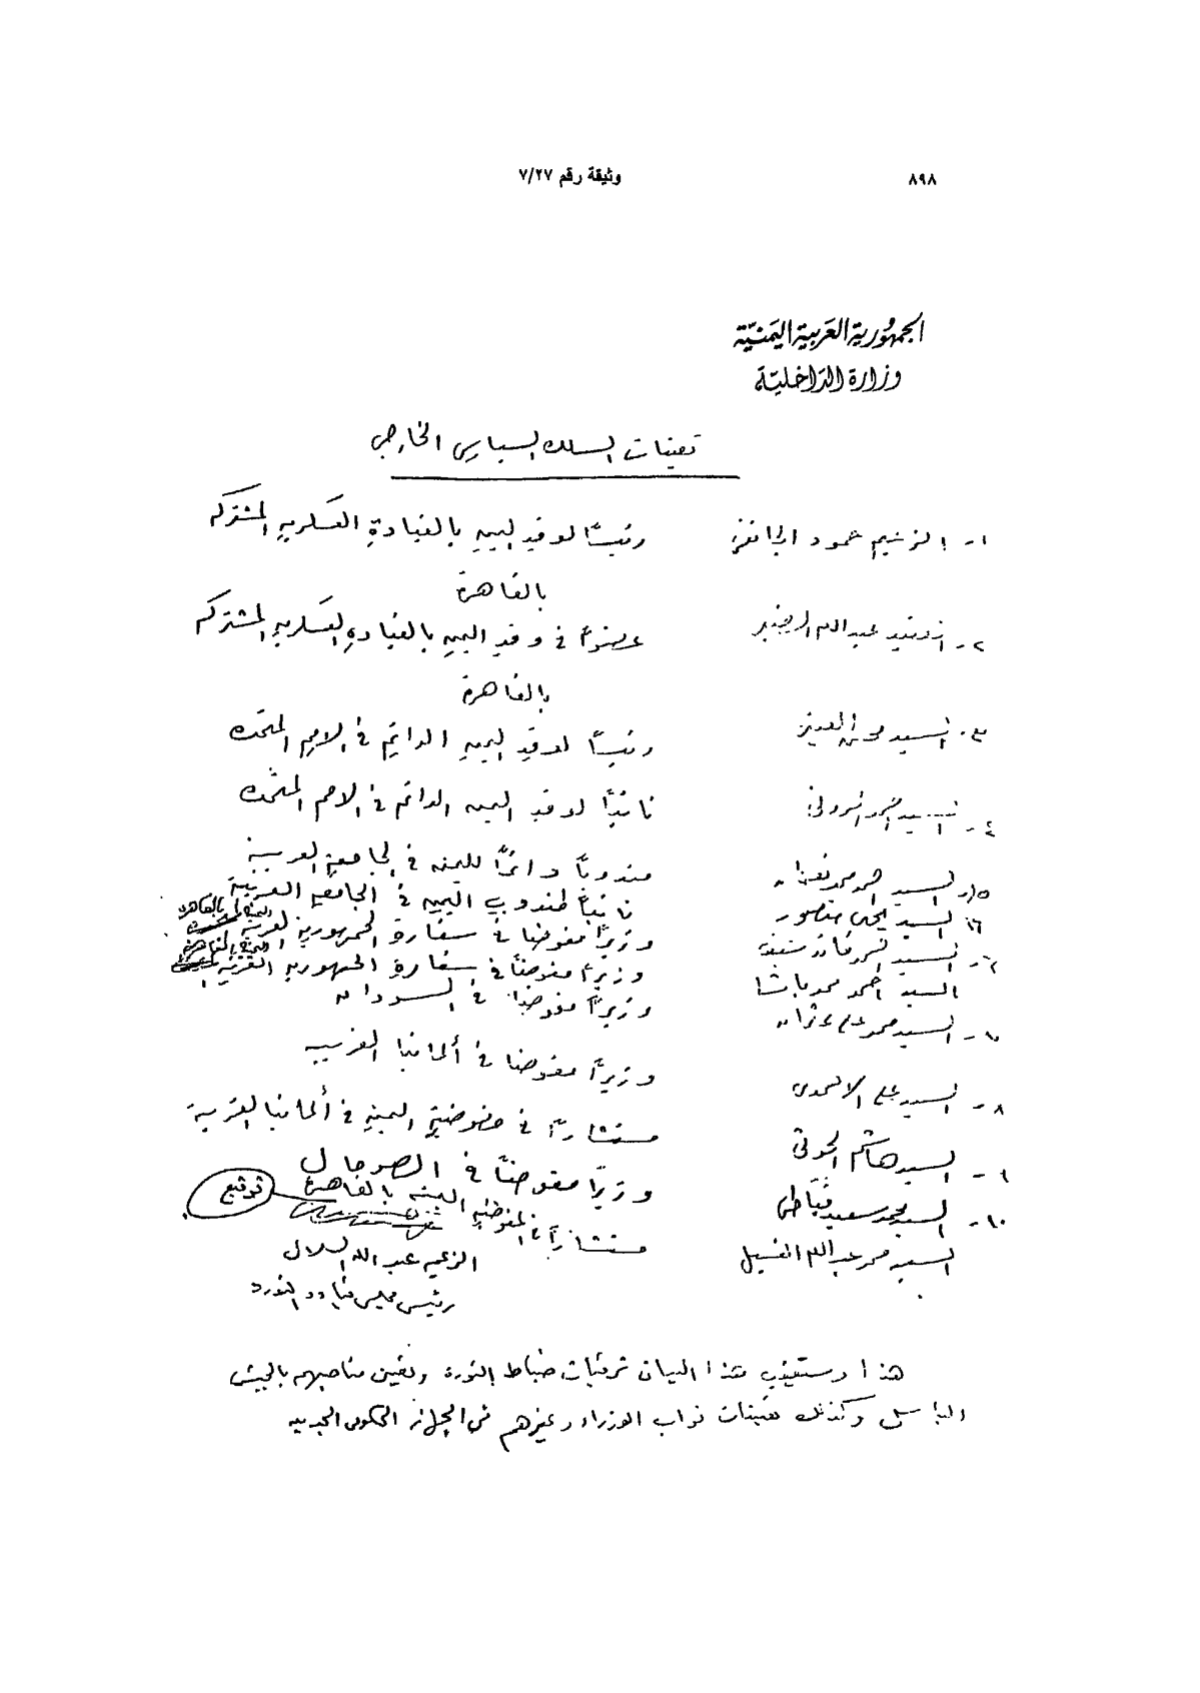 ٨٩٨
وثيقة رقم ٧/٢٧
الجمهورية العربية اليمنية
وزارة الداخلية
تعينات السلك السياسي الخارجي
١- الزعيم حمود الجائفي رئيسًا لوفد اليمن بالقيادة العسكرية المشتركة
بالقاهرة
٢- عبدالله عضوًا في وفد اليمن بالقيادة العسكرية المشتركة
بالقاهرة
٣- السيد محسن العيني رئيسًا لوفد اليمن الدائم في الامم المتحدة
٤- السيد نائبًا لوفد اليمن الدائم في الامم المتحدة
٥- السيد احمد محمد نعمان مندوبًا دائمًا لليمن في الجامعة العربية
٦- السيد يحيى منصور نائبًا لمندوب اليمن في الجامعة العربية
السيد وزيرًا مفوضا في سفارة الجمهورية العربية اليمنية بالقاهرة
السيد احمد محمد باشا وزيرًا مفوضًا في سفارة الجمهورية العربية اليمنية بالقاهرة
السيد محمد علي وزيرًا مفوضًا في السودان
٨- السيد علي الاحمدي وزيرًا مفوضا في ألمانيا الغربية
٩- السيد هاشم الحوثي مستشارًا في مفوضية اليمن في ألمانيا الغربية
١٠- السيد محمد سعيد قباطي وزيرًا مفوضًا في الصومال
السيد محمد عبدالله الفسيل مستشارًا في المفوضية اليمنية بالقاهرة
توقيع
الزعيم عبدالله السلال
رئيس مجلس قيادة الثورة
هذا وستعقب هذا البيان ترقيات ضباط الثورة وتعين مناصبهم بالجيش
الباسل وكذلك تعينات نواب الوزراء وغيرهم في الجهاز الحكومي الجديد